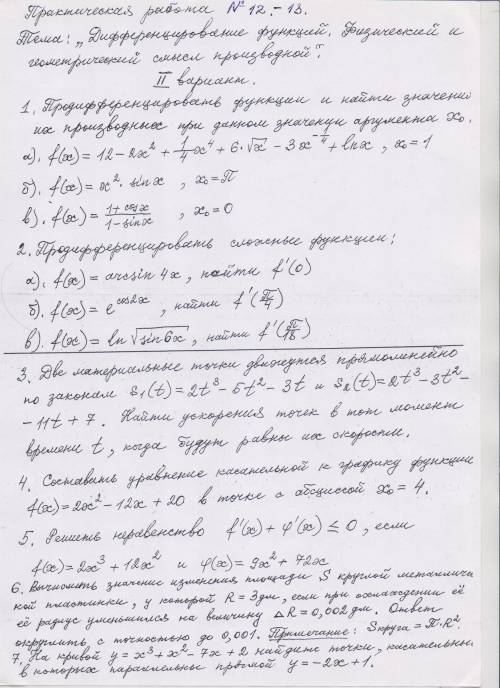 Практическая работа № 12.-13.
Тема: „Дифференцирование функций. Физический и
геометрический смысл производной".
II вариант.
1. Продифференцировать функции и найти значений
их производных при данном значении аргумента x₀.
а). f(x) = 12 - 2x² + 1/4 x⁴ + 6·√x - 3x⁻⁴ + lnx , x₀ = 1
б). f(x) = x² · sinx , x₀ = π
в). f(x) = (1+cosx)/(1-sinx) , x₀ = 0
2. Продифференцировать сложные функции:
а). f(x) = arcsin 4x, найти f'(0)
б). f(x) = e^(cos2x) , найти f'(π/4)
в). f(x) = ln √(sin6x) , найти f'(π/18)
3. Две материальные точки движутся прямолинейно
по законам S₁(t) = 2t³ - 5t² - 3t и S₂(t) = 2t³ - 3t² -
- 11t + 7. Найти ускорения точек в тот момент
времени t, когда будут равны их скорости.
4. Составить уравнение касательной к графику функции
f(x) = 2x² - 12x + 20 в точке с абсциссой x₀ = 4.
5. Решить неравенство f'(x) + φ'(x) ≤ 0 , если
f(x) = 2x³ + 12x² и φ(x) = 9x² + 72x
6. Вычислить значение изменения площади S круглой металличес
кой пластинки, у которой R = 3дм, если при охлаждении её
её радиус уменьшился на величину △R = 0,002 дм. Ответ
округлить с точностью до 0,001. Примечание: Sкруга = π·R².
7. На кривой y = x³ + x² - 7x + 2 найдите точки, касательные
в которых параллельны прямой y = -2x + 1.